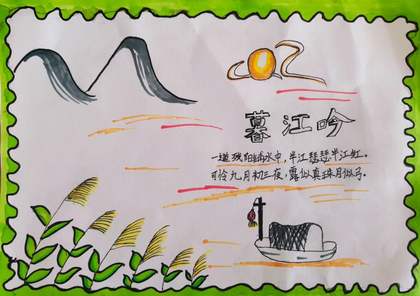 暮江吟
一道残阳铺水中，半江瑟瑟半江红。
可怜九月初三夜，露似真珠月似弓。